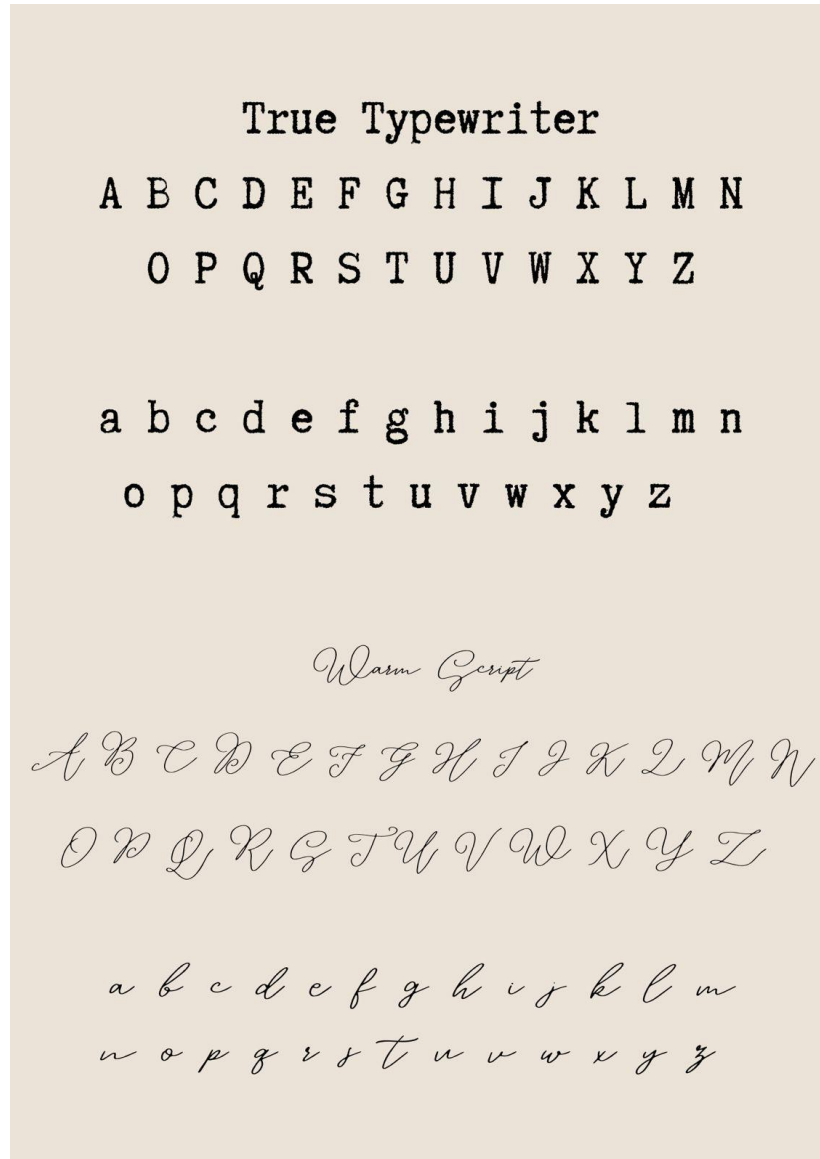 True Typewriter
A B C D E F G H I J K L M N
O P Q R S T U V W X Y Z
a b c d e f g h i j k l m n
o p q r s t u v w x y z
Warm Script
A B C D E F G H I J K L M N
O P Q R S T U V W X Y Z
a b c d e f g h i j k l m
n o p q r s t u v w x y z